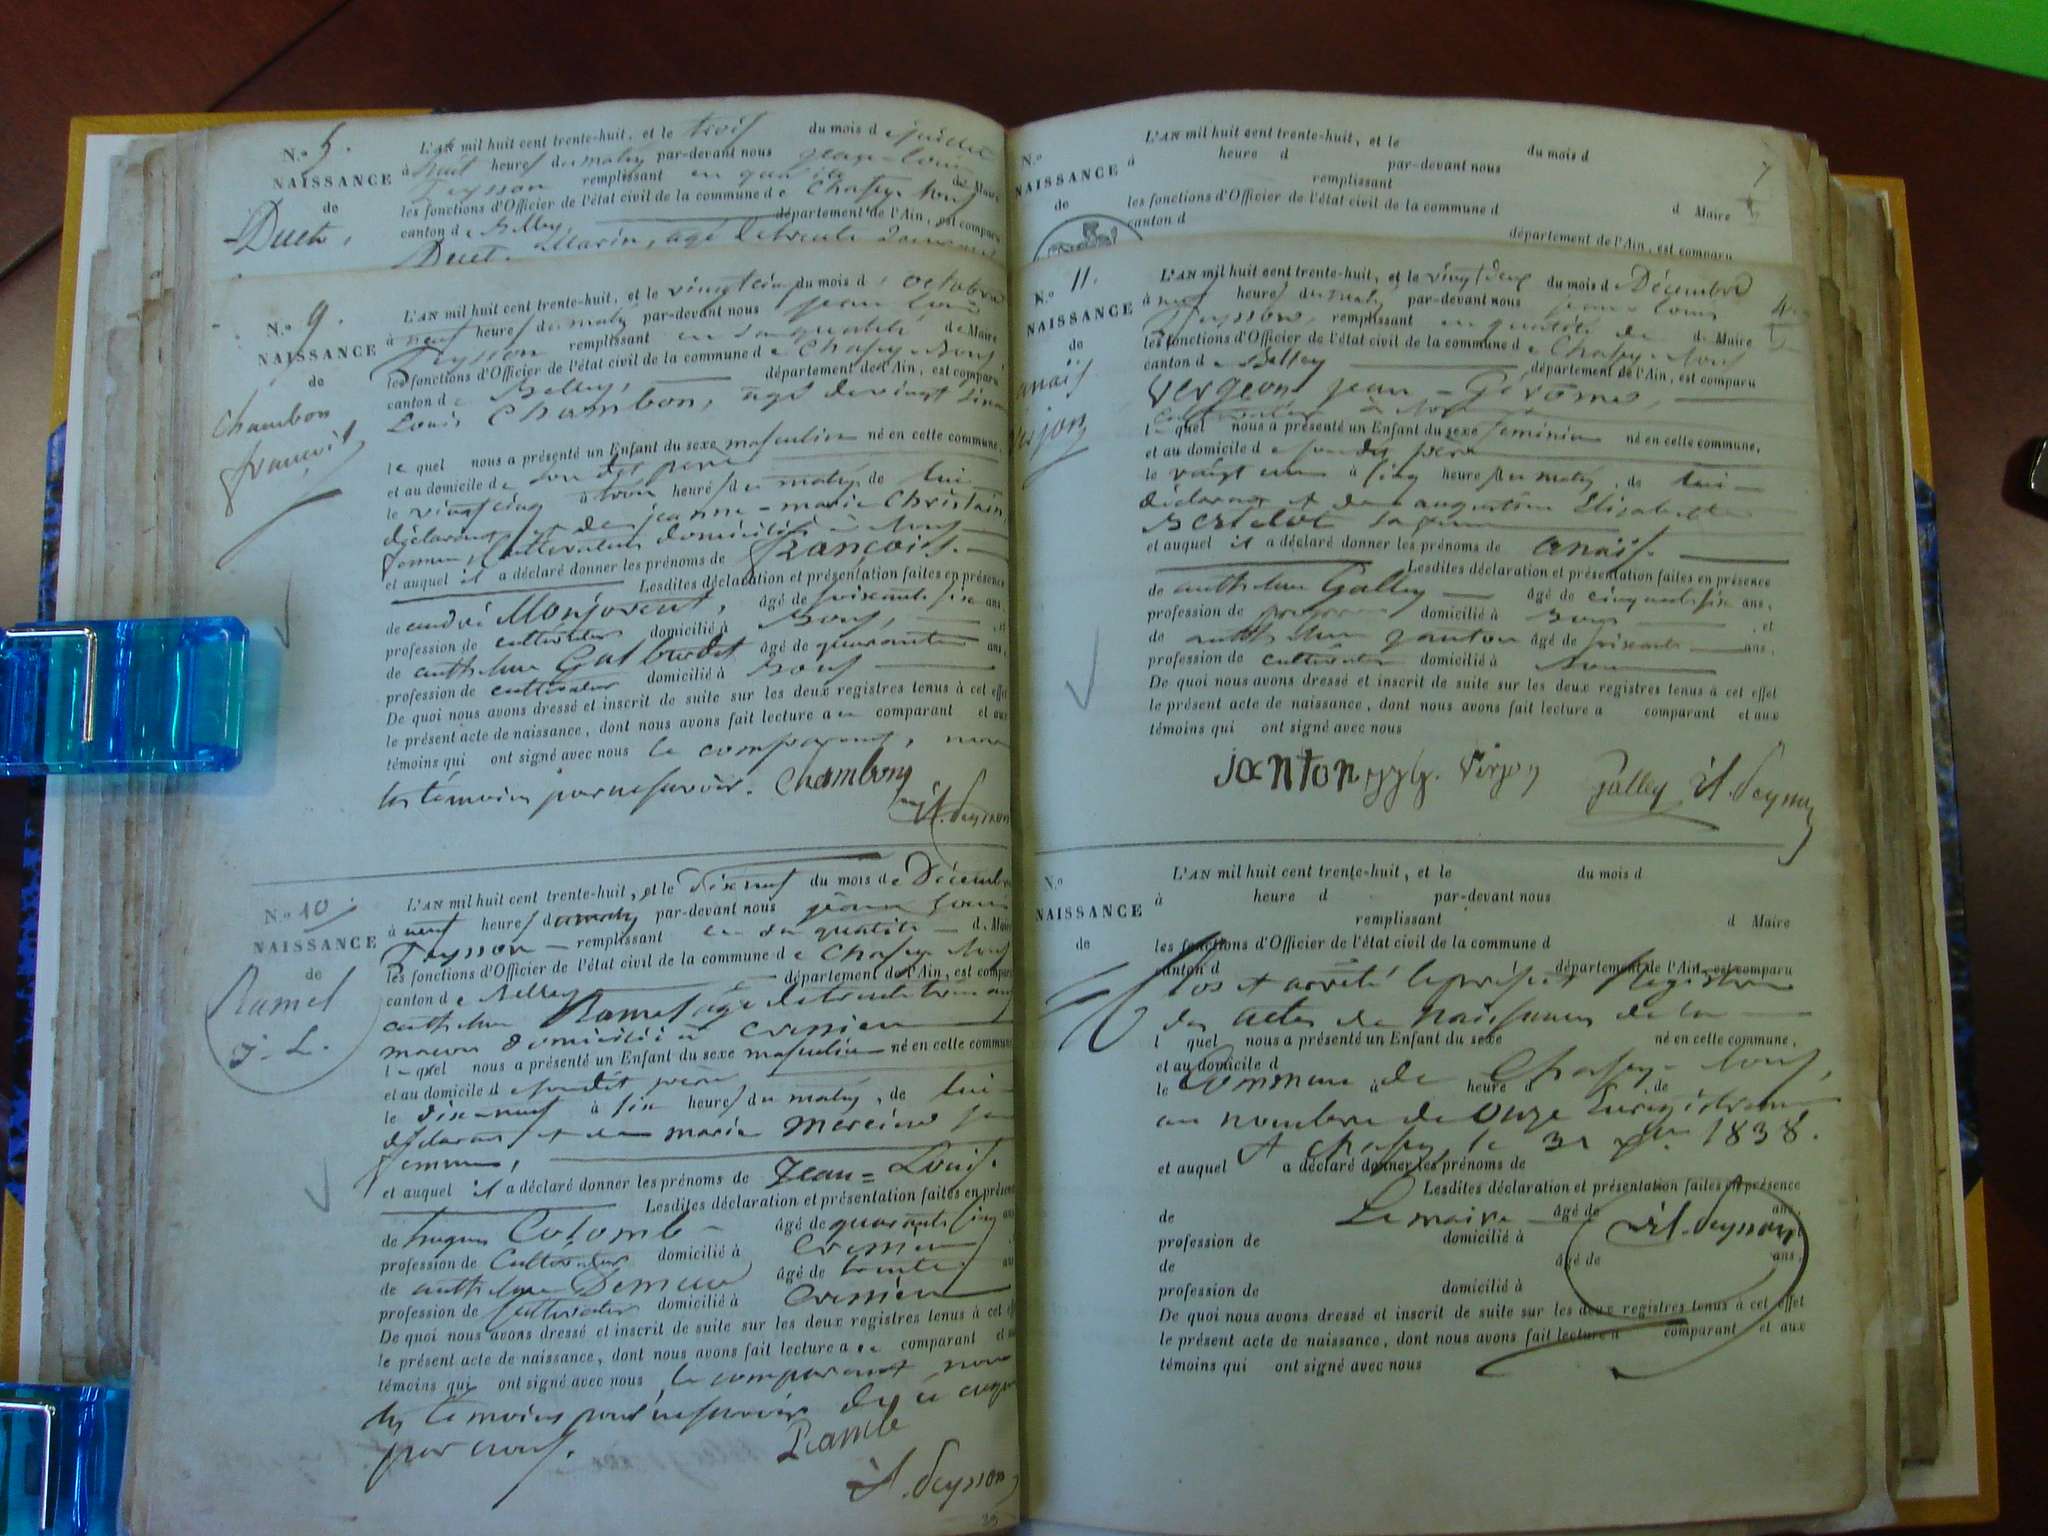 N.º 5.
NAISSANCE
de
Ducto,
L'AN mil huit cent trente-huit, et le trois du mois de juillet
à huit heures du matin par-devant nous jean-louis
Teysson remplissant en qualité de Maire
les fonctions d'Officier de l'état civil de la commune de Chasey-bons
canton de Belley, département de l'Ain, est comparu
Ducet Marin, agé de trente
N.º 9.
NAISSANCE
de
Chambon
françois
L'AN mil huit cent trente-huit, et le vingt cinq du mois d'octobre
à neuf heures du matin par-devant nous jean louis
Teysson remplissant en sa qualité de Maire
les fonctions d'Officier de l'état civil de la commune de Chasey-Bons,
canton de Belley, département de l'Ain, est comparu
Louis Chambon, agé de vingt
lequel nous a présenté un Enfant du sexe masculin né en cette commune,
et au domicile de son dit père
le vingt cinq à trois heures du matin, de lui
déclarant et de jeanne-marie Christin,
femme, cultivateurs domiciliés à Bons
et auquel il a déclaré donner les prénoms de françois.
Lesdites déclaration et présentation faites en présence
de andré Monjovent, âgé de soixante six ans,
profession de cultivateur domicilié à Bons, et
de anthelme âgé de quarante ans,
profession de cultivateur domicilié à Bons
De quoi nous avons dressé et inscrit de suite sur les deux registres tenus à cet effet
le présent acte de naissance, dont nous avons fait lecture au comparant et aux
témoins qui ont signé avec nous le comparant, non
les témoins pour ne savoir. Chambon
jh. Teysson
N.º 10
NAISSANCE
de
Ramel
j. L.
L'AN mil huit cent trente-huit, et le dix neuf du mois de Décembre
à neuf heures du matin par-devant nous jean louis
Teysson remplissant en sa qualité de Maire
les fonctions d'Officier de l'état civil de la commune de Chasey Bons
canton de Belley département de l'Ain, est comparu
anthelme Ramel agé de trente trois ans
maçon domicilié à Cressieu
lequel nous a présenté un Enfant du sexe masculin né en cette commune
et au domicile de son dit père
le dix-neuf à six heures du matin, de lui
déclarant et de marie Mercier sa
femme,
et auquel il a déclaré donner les prénoms de Jean=Louis.
Lesdites déclaration et présentation faites en présence
de hugues Colomb âgé de quarante cinq ans
profession de Cultivateur domicilié à Cressieu
de anthelme âgé de trente ans
profession de Cultivateur domicilié à Cressieu
De quoi nous avons dressé et inscrit de suite sur les deux registres tenus à cet effet
le présent acte de naissance, dont nous avons fait lecture au comparant et aux
témoins qui ont signé avec nous le comparant non
les témoins pour ne savoir de ce enquis
par nous.
Ramel
jh. Teysson
39
7
N.º
NAISSANCE
de
L'AN mil huit cent trente-huit, et le du mois d
à heure d par-devant nous
remplissant d Maire
les fonctions d'Officier de l'état civil de la commune d
canton d département de l'Ain, est comparu
N.º 11.
NAISSANCE
de
anaïs
L'AN mil huit cent trente-huit, et le vingt deux du mois de Décembre
à neuf heures du matin par-devant nous jean louis
Teysson, remplissant en qualité de d Maire
les fonctions d'Officier de l'état civil de la commune de Chasey-Bons
canton de Belley département de l'Ain, est comparu
Vergeon jean-Gérôme,
Cultivateur à Bons
lequel nous a présenté un Enfant du sexe féminin né en cette commune,
et au domicile de son dit père
le vingt un à cinq heures du matin, de lui
déclarant et de augustine Elisabeth
sa femme
et auquel il a déclaré donner les prénoms de anaïs.
Lesdites déclaration et présentation faites en présence
de anthelme Galley âgé de cinquante six ans,
profession de domicilié à Bons, et
de anthelme janton âgé de soixante ans,
profession de cultivateur domicilié à Bons
De quoi nous avons dressé et inscrit de suite sur les deux registres tenus à cet effet
le présent acte de naissance, dont nous avons fait lecture a comparant et aux
témoins qui ont signé avec nous
janton Virjon Galley jh. Teysson
N.º
NAISSANCE
de
L'AN mil huit cent trente-huit, et le du mois d
à heure d par-devant nous
remplissant d Maire
les fonctions d'Officier de l'état civil de la commune d
canton d département de l'Ain, est comparu
Clos et arrêté le présent Registre
des actes de Naissances de la
l quel nous a présenté un Enfant du sexe né en cette commune,
et au domicile d
le à heure d de
Commune de Chasey-bons,
au nombre de Onze Enregistrements
A Chasey le 31 Xbre 1838.
et auquel a déclaré donner les prénoms de
Lesdites déclaration et présentation faites en présence
de âgé de ans,
Le maire jh. Teysson
profession de domicilié à
de âgé de ans,
profession de domicilié à
De quoi nous avons dressé et inscrit de suite sur les deux registres tenus à cet effet
le présent acte de naissance, dont nous avons fait lecture a comparant et aux
témoins qui ont signé avec nous